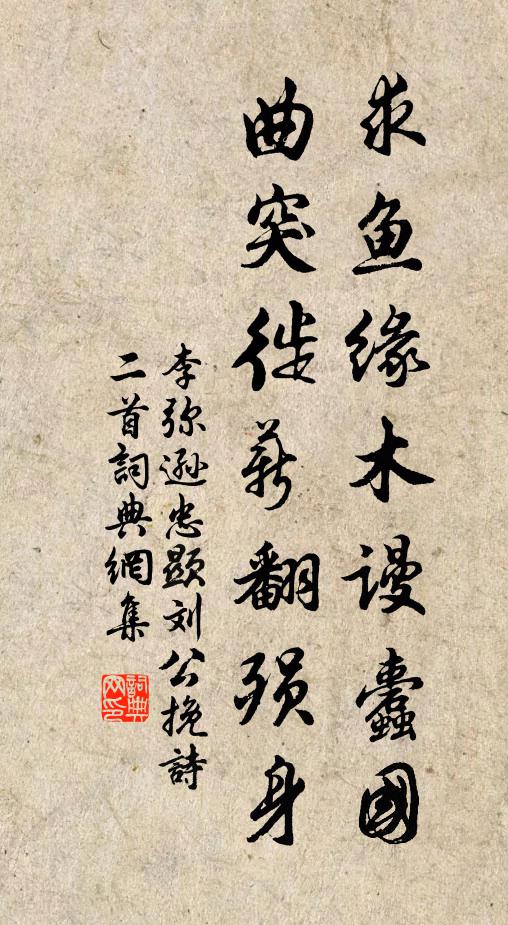 求鱼缘木谩蠹國
曲突徙薪翻殒身
李弥逊忠顯刘公挽詩
二首詞典網集
詞典网印